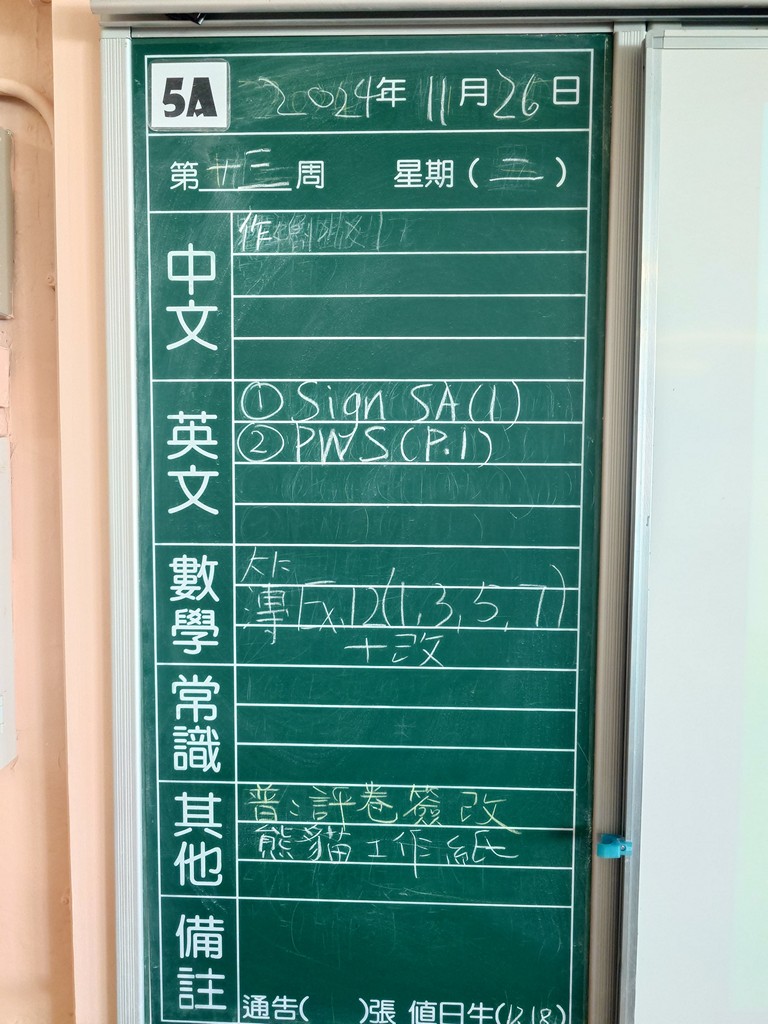 5A 2024年11月26日
第十三周 星期(二)
中文
英文
①Sign SA(1)
②PWS(P.1)
數學
簿Ex.12(1,3,5,7)
+改
常識
其他
普:評卷簽改
熊貓工作紙
備註
通告( )張 值日生(12,18)